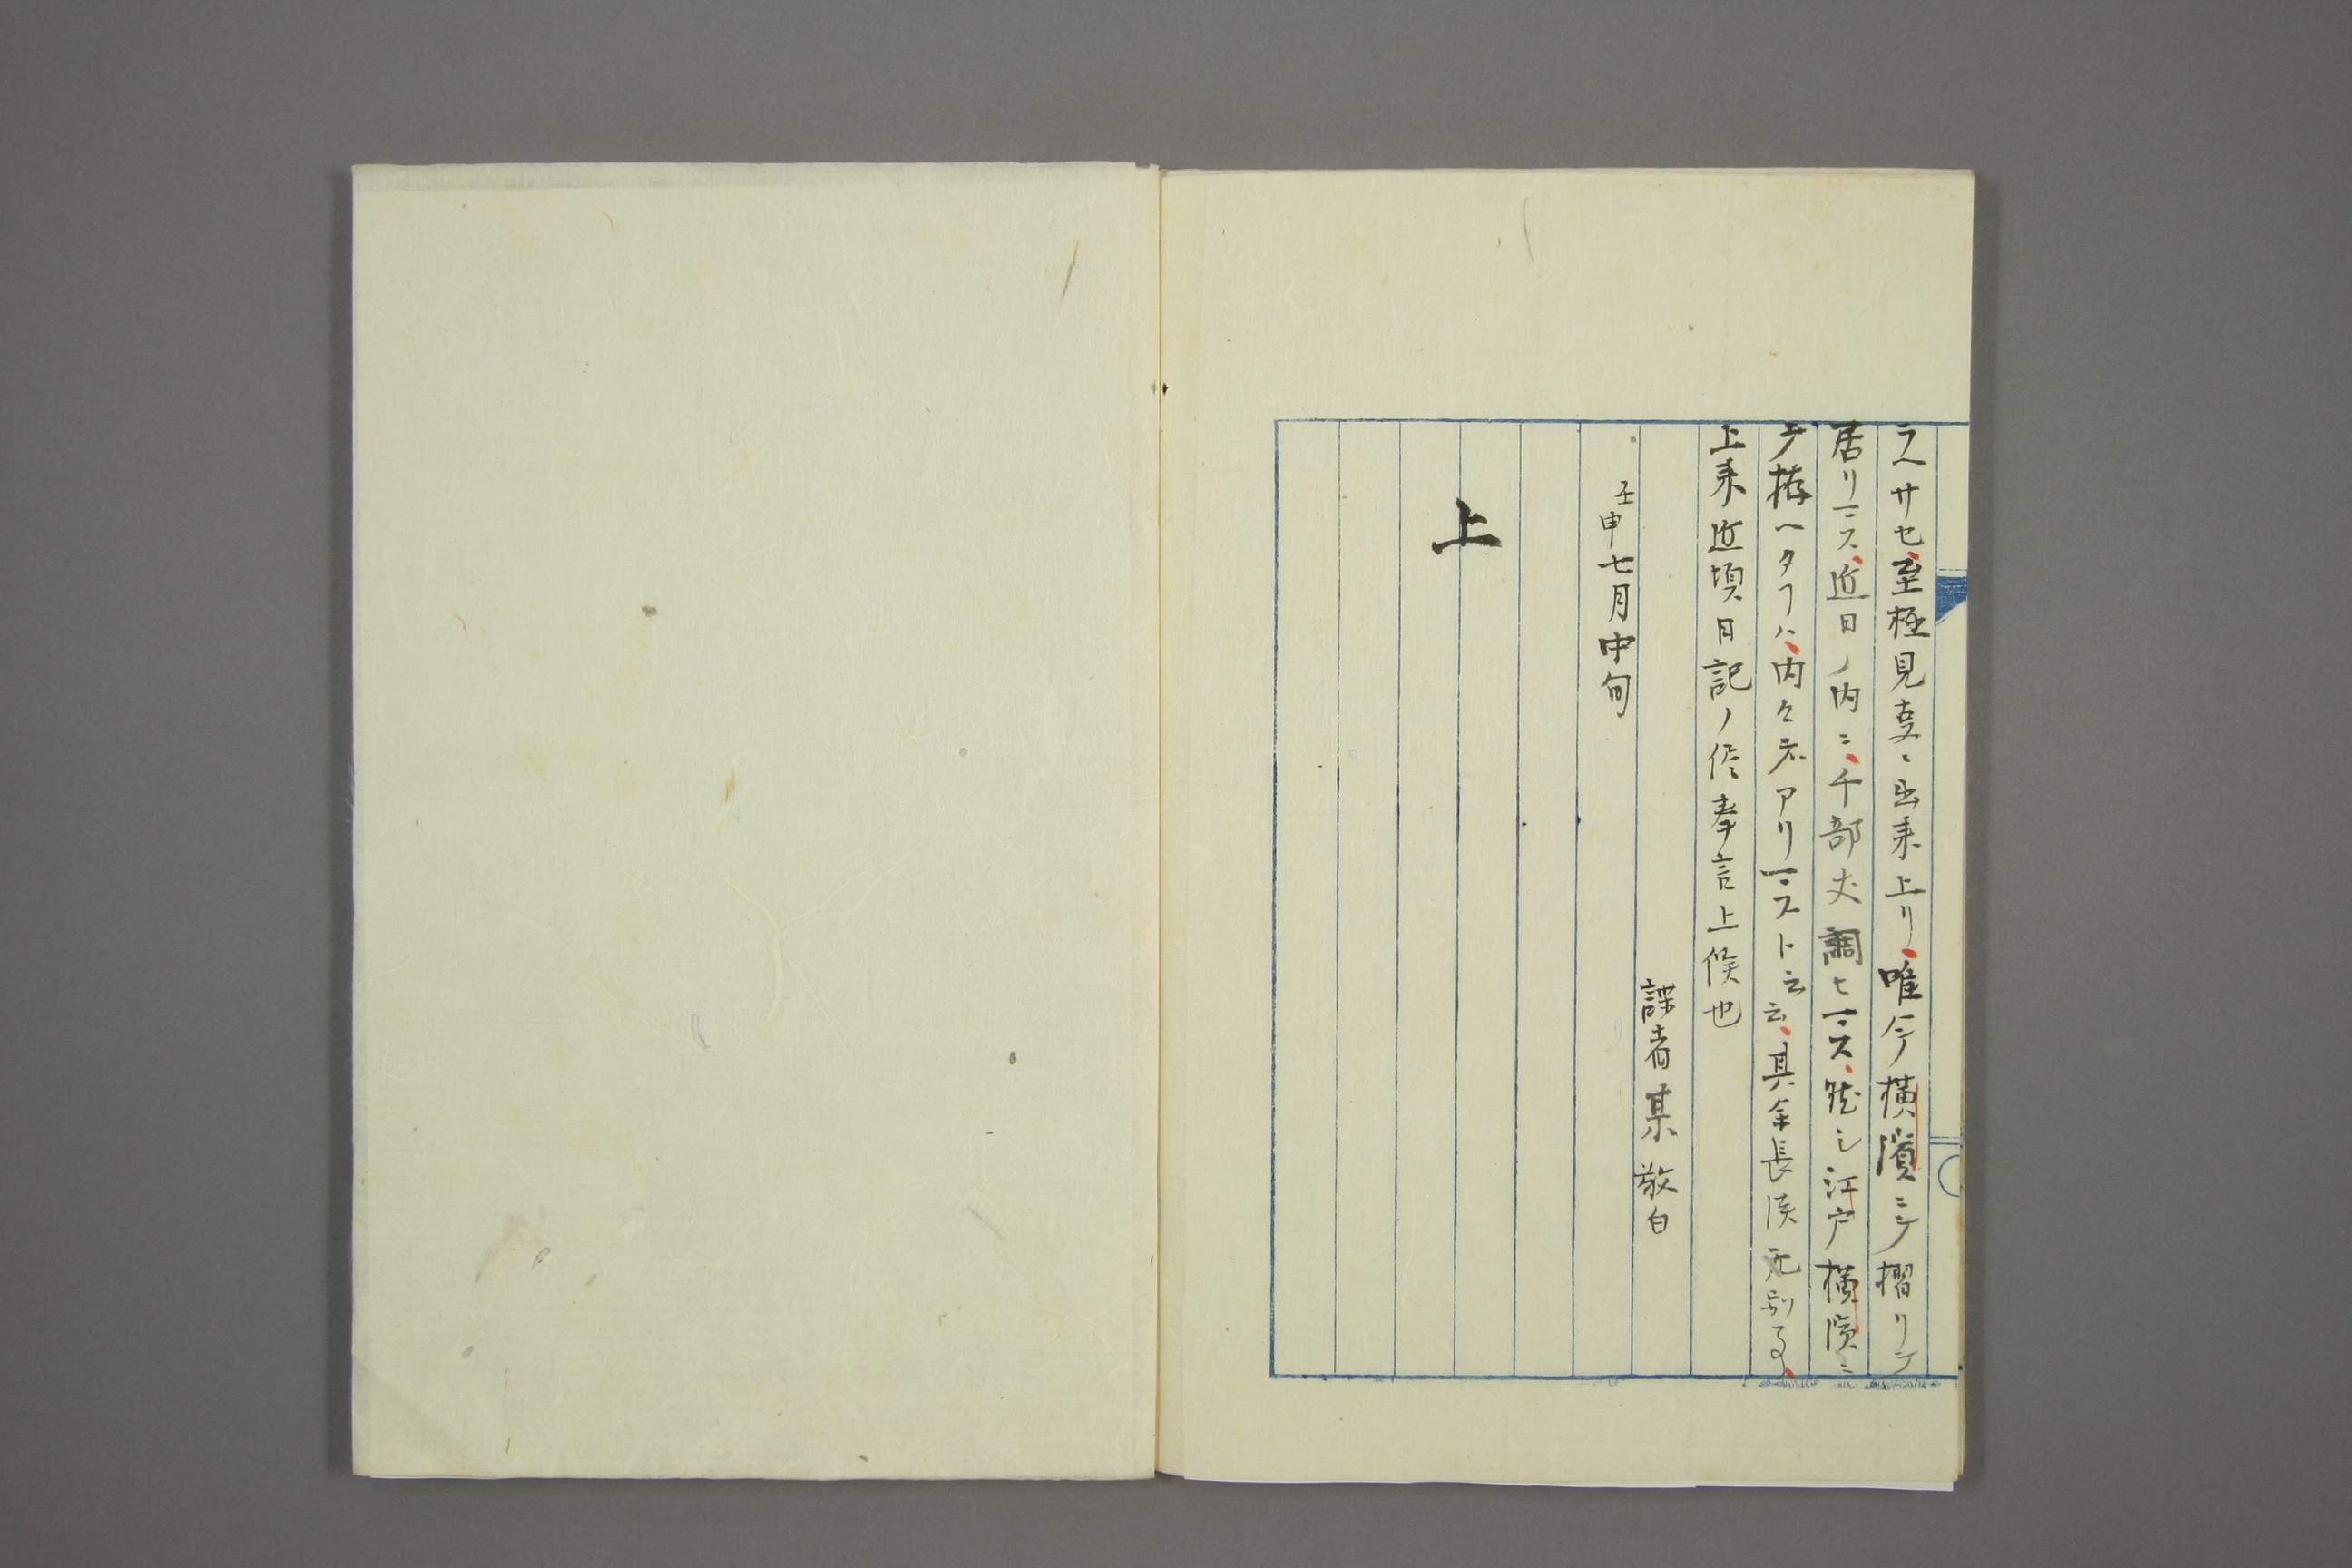 ラヘサセ、至極見事ニ出来上リ、唯今横濱ニテ摺リテ
居リマス、近日ノ内ニ、千部丈調ヒマス、然シ江戸横濱ニ
テ拵ヘタフハ、内々デアリマスト云云、其余長涘无別事、
上来近頃日記ノ侭奉言上候也
諜者某敬白
壬申七月中旬
上